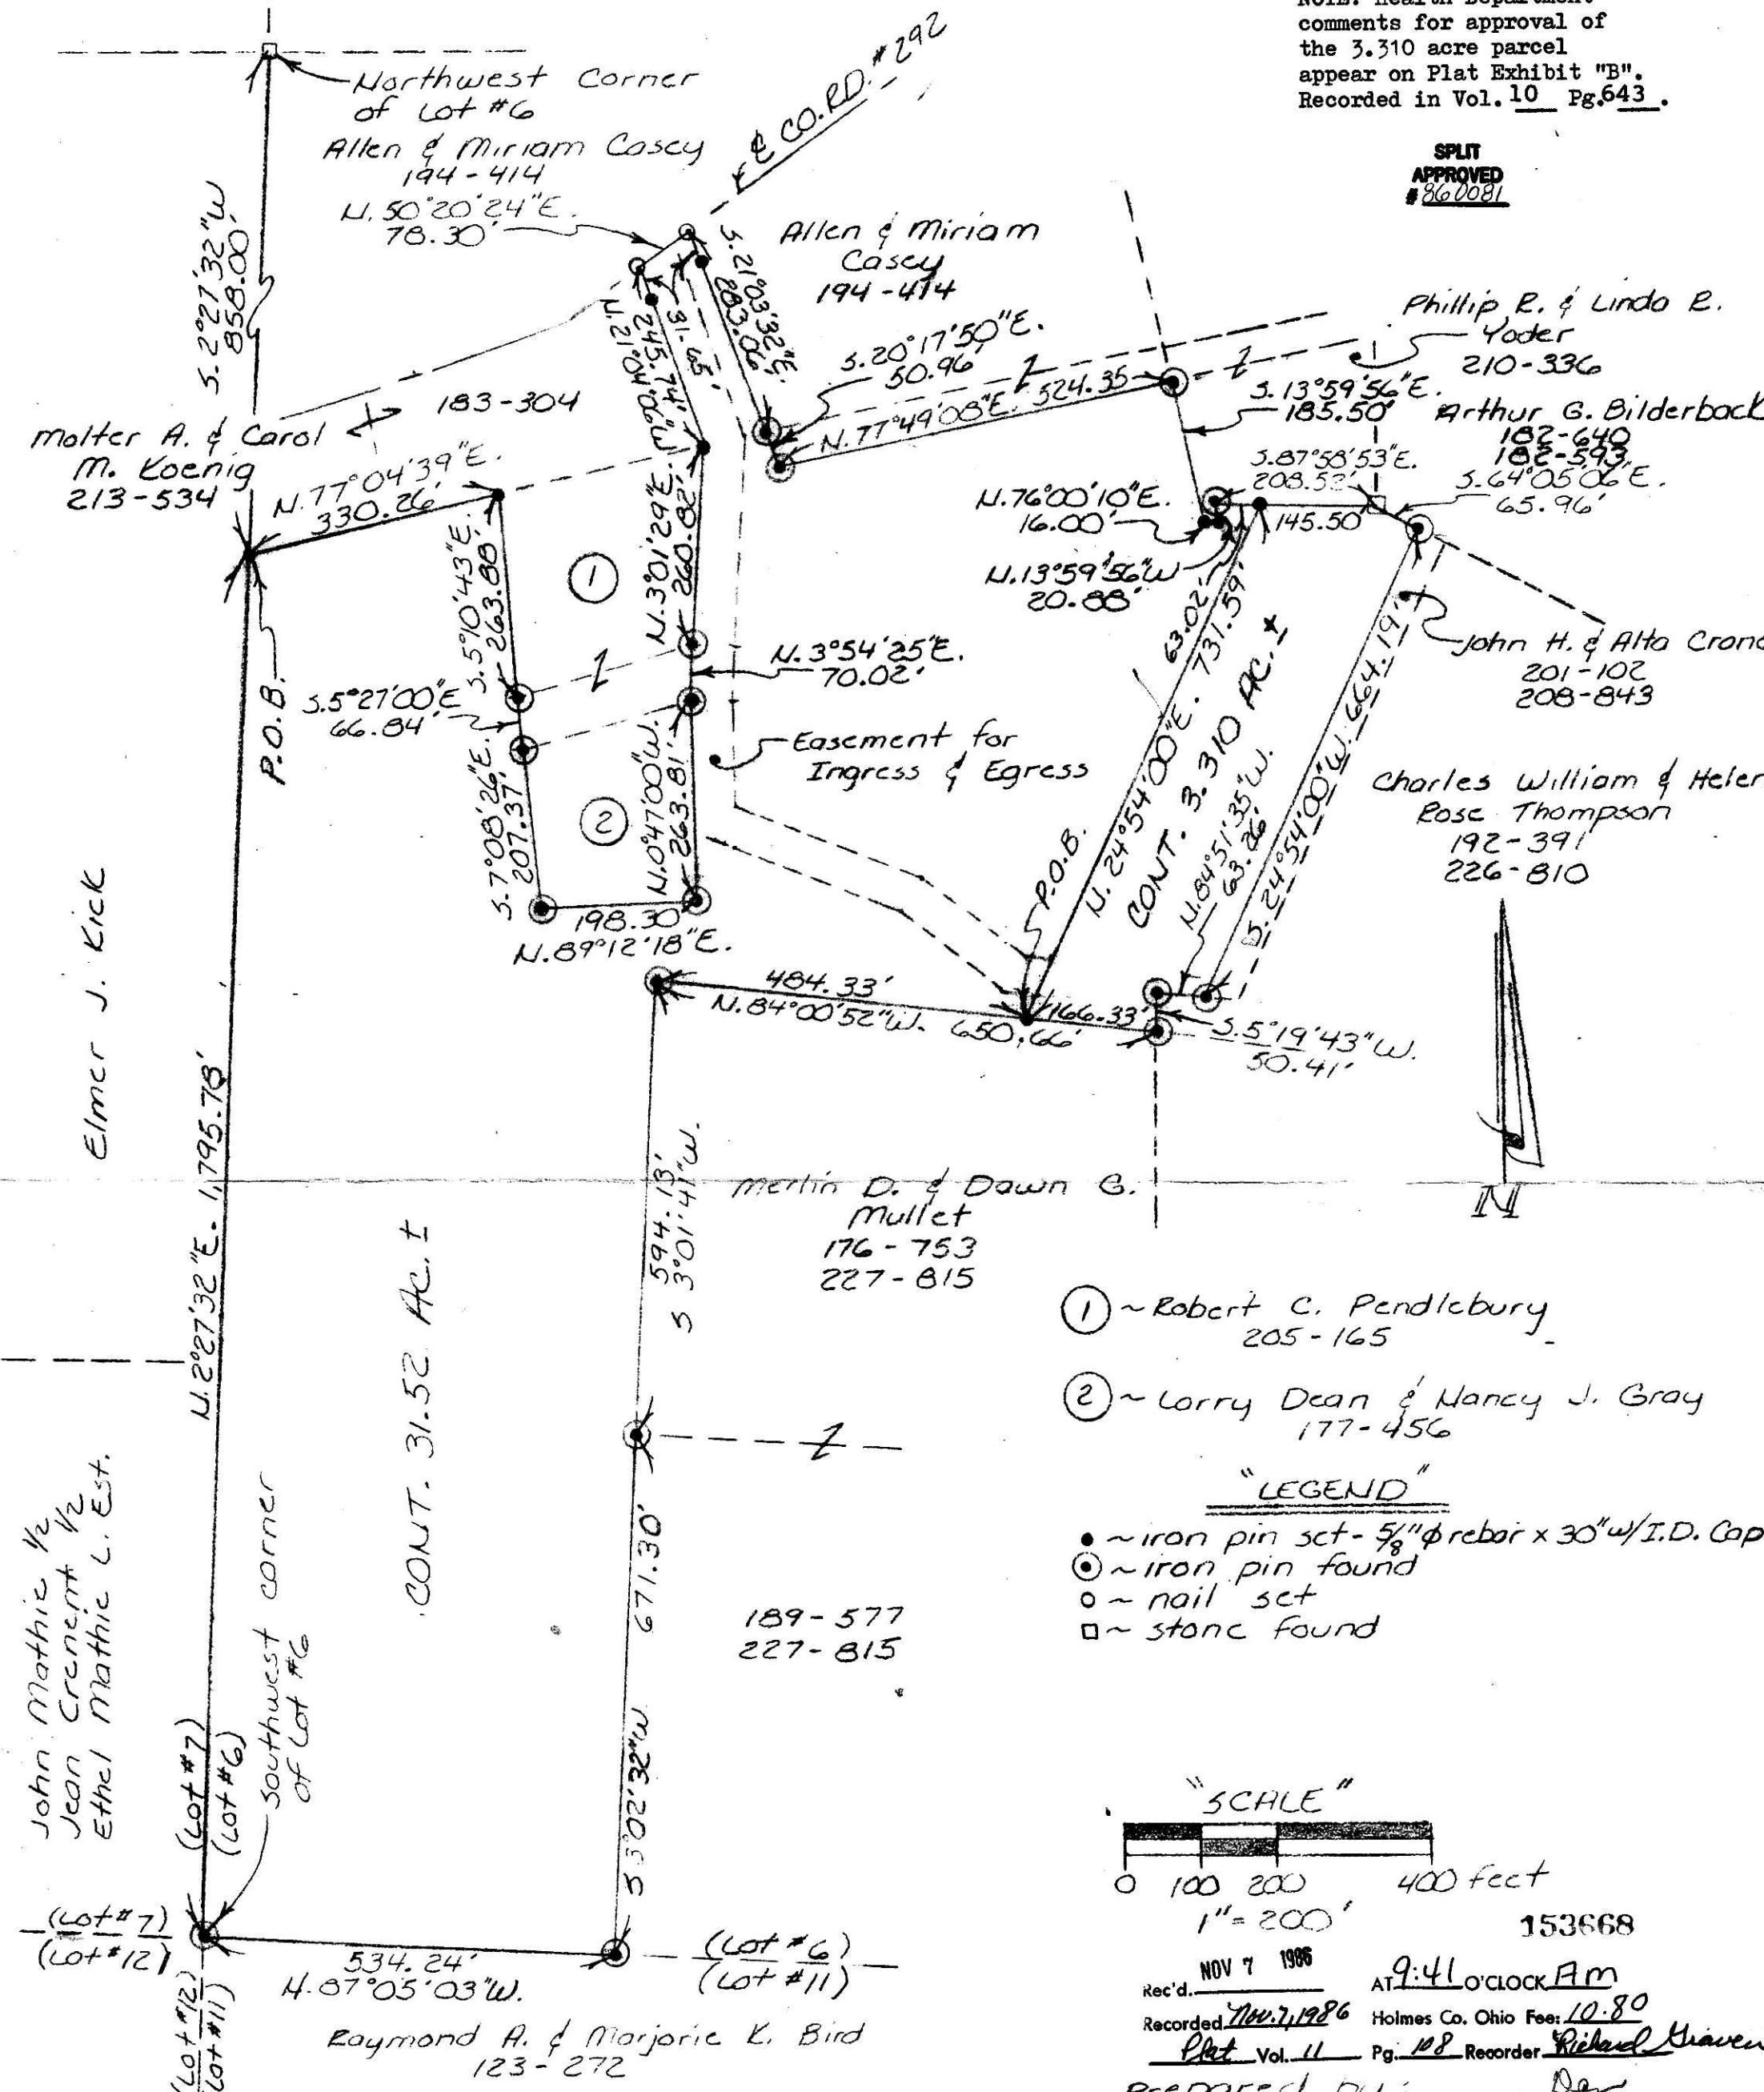 comments for approval of
the 3.310 acre parcel
appear on Plat Exhibit "B".
Recorded in Vol. 10 Pg. 643.
SPLIT
APPROVED
# 860081
Northwest Corner
of Lot #6
Allen & Miriam Casey
194-414
N. 50°20'24"E.
78.30'
℄ CO. RD. #292
S. 2°27'32"W
858.00'
Allen & Miriam
Casey
194-414
S. 21°03'32"E.
283.06'
31.65'
N. 21°04'06"W.
245.74'
S. 20°17'50"E.
50.96'
N. 77°49'08"E. 524.35'
Phillip R. & Linda E.
Yoder
210-336
S. 13°59'56"E.
185.50'
Arthur G. Bilderback
182-640
182-593
S. 87°58'53"E.
208.52'
S. 64°05'06"E.
65.96'
145.50'
N. 76°00'10"E.
16.00'
N. 13°59'56"W
20.88'
183-304
Malter A. & Carol
M. Koenig
213-534
N. 77°04'39"E.
330.26'
P.O.B.
S. 5°10'43"E.
263.88'
1
N. 3°01'29"E.
260.82'
N. 3°54'25"E.
70.02'
S. 5°27'00"E
66.84'
Easement for
Ingress & Egress
S. 7°08'26"E.
207.37'
2
N. 0°47'00"W.
263.81'
198.30'
N. 89°12'18"E.
63.02'
N. 24°54'00"E. 731.59'
CONT. 3.310 AC. ±
P.O.B.
N. 84°51'35"W.
63.26'
S. 24°54'00"W. 664.19'
John H. & Alta
201-102
208-843
Charles William &
Rose Thompson
192-391
226-810
484.33'
N. 84°00'52"W. 650.66'
166.33'
S. 5°19'43"W.
50.41'
N
Elmer J. Kick
N. 2°27'32"E. 1,795.78'
594.13'
S 3°01'41"W.
Merlin D. & Dawn G.
Mullet
176-753
227-815
CONT. 31.52 AC. ±
1 ~ Robert C. Pendlebury
205-165
2 ~ Larry Dean & Nancy J. Gray
177-456
"LEGEND"
~ iron pin set - 5/8" ϕ rebar x 30" w/I.D. Cap
~ iron pin found
~ nail set
~ stone found
John Mathie 1/2
Jean 1/2
Ethel Mathie L. Est.
Southwest corner
of Lot #6
671.30'
S 3°02'32"W
189-577
227-815
(Lot #7)
(Lot #6)
(Lot #7)
(Lot #12)
534.24'
N. 87°05'03"W.
(Lot #6)
(Lot #11)
(Lot #12)
(Lot #11)
Raymond A. & Marjorie K. Bird
123-272
"SCALE"
0 100 200 400 feet
1" = 200'
153668
Rec'd. NOV 7 1986 AT 9:41 O'CLOCK AM
Recorded Nov. 7, 1986 Holmes Co. Ohio Fee: 10.80
Plat Vol. 11 Pg. 108 Recorder Richard